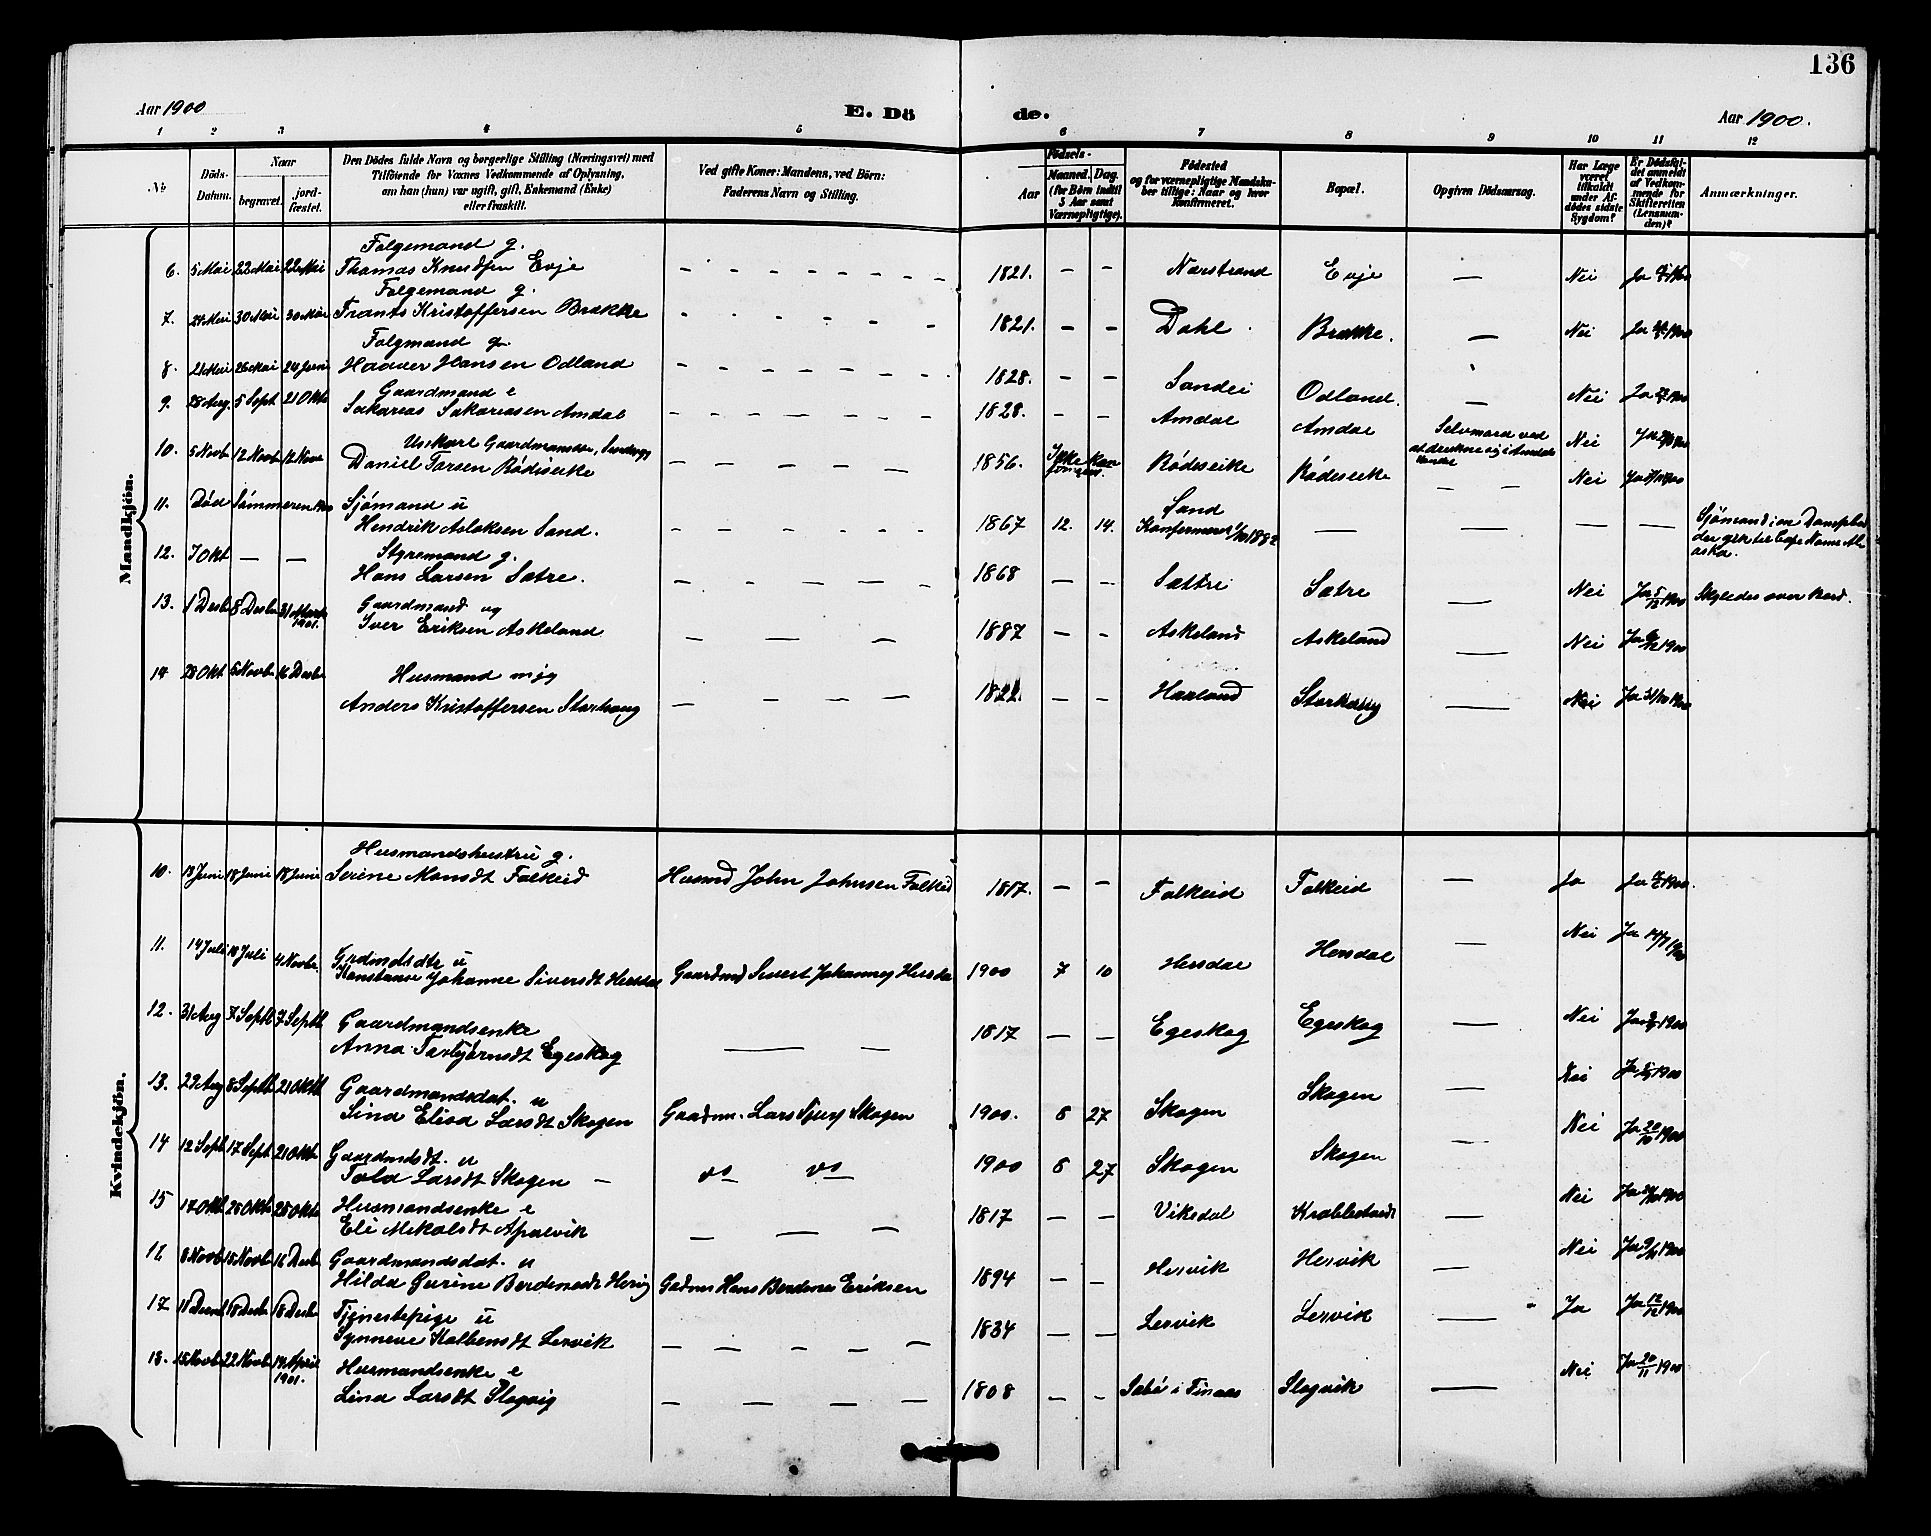 136
Aar 1900
E. Dö
de.
Aar 1900.
1 2 3 4 5 6 7 8 9 10 11 12
No
Döds-Datum.
Naar
begravet.
jord-fæstet.
Den Dödes fulde Navn og borgerlige Stilling (Næringsvei) med
Tilföiende for Voxnes Vedkommende af Oplysning,
om han (hun) var ugift, gift, Enkemand (Enke)
eller fraskilt.
Ved gifte Koner: Mandens, ved Börn:
Faderens Navn og Stilling.
Födsels-
Aar
Maaned. Dag.
(for Börn indtil
5 Aar samt
Værnepligtige).
Födested
og for værnepligtige Mandskaber tillige: Naar og hvor
Konfirmeret.
Bopæl.
Opgiven Dödsaarsag.
Har Læge
været
tilkaldt
under Afdödes sidste
Sygdom?
Er Dödsfaldet anmeldt
af Vedkommende for
Skifteretten
(Lensmanden)?
Anmærkninger.
Mandkjön.
Folgemand g.
6. 5 Mai 22 Mai 22 Mai Thomas Knudsen Evje — 1821. — — Nærstrand Evje — Nei Ja
Folgemand g.
7. 30 Mai 30 Mai Frants Kristoffersen Brække — 1821. — — Dahl Brække. — Nei Ja
Folgmand g.
8. 21 Mai 26 Mai 24 Juni Haaver Hansen Odland — 1828. — — Sandei Odland. — Nei Ja
Gaardmand e
9. 28 Aug. 5 Sept 21 Okt Sakarias Sakariasen Amdal — 1828. — — Amdal Amdal Selvmord ved Nei Ja
Gaardmandssøn,
10. 5 Novb 12 Novb 12 Novb Daniel Tarsen Rødiseike — 1856. Ikke kan Rødeseike Rødeseike — — Nei Ja
11. Død Sommeren 1900 Sjømand u
Hendrik Aslaksen Sand. — 1867 12. 14. Sand
Konfirmeret 1/10 1882 — — — — Sjømand i en
der gik til Cape Nome Alaska.
12. 7 Okt — — Styremand g.
Hans Larsen Sætre. — 1868 — — Sættri Sætre — Nei Ja 5/12 1900 Skylledes over bord.
13. 1 Desb 8 Desb 31 Marts 1901. Gaardmand ug
Iver Eriksen Askeland — — — 1887 — — Askeland Askeland — Nei Ja 1900
14 28 Okt 5 Novb 16 Desb Husmand
Anders Kristoffersen Storhaug — — — 1822. — — Haaland Storhaug — Nei Ja 31/10 1900
Kvindekjön.
Husmandshustru g.
10. 13 Juni 18 Juni 18 Juni Serine Monsdt Falkeid Husmd John Johnsen Falkeid 1817. — — Falkeid Falkeid — Ja Ja 1900.
11. 14 Juli 18 Juli 4 Novbr Gudmdsdtr u
Konstanse Johanne Siversdt Hersdal Gaardmd Sivert Johannes Hersdal 1900 7 10 Hersdal Hersdal — Nei Ja 14/7 1900
12. 31 Aug 7 Septb 7 Septb Gaardmandsenke
Anna Torbjørnsdt Egeskog — — 1817 — — Egeskog Egeskog — Nei Ja 1900
13. 29 Aug 8 Septb 21 Okt Gaardmandsdat. u
Sina Elisa Larsdt Skogen Gaadm. Lars Skogen 1900. 6 27 Skogen Skogen — Nei Ja 1900
14 12 Sept 17 Sept 21 Okt Gaardmdsdt. u
Tala Larsdt Skogen — do do 1900 6 27 Skogen Skogen — Nei Ja 20/10 1900
15 17 Okt 25 Okt 25 Okt Husmandsenke e
Eli Mikalsdt Apalvik — — — 1817 — — Vikedal — Nei Ja 1900
16 8 Novb 15 Novb 16 Desb Gaardmandsdat. u
Hilda Gurine Berdinesdt Hervig Gadm Hans Berdines Eriksen 1894 — — Hervik Hervik — Nei Ja 9/11 1900
17 11 Desb 18 Desb 18 Desb Tjenestepige u
Synneve Kolbensdt Lervik — — — 1834 — — Lervik Lervik — Ja Ja 12/12 1900
18. 15 Novb 22 Novb 14 April 1901. Husmandsenke e
Lina Larsdt Slogvig — — — 1808 — — Sæbö i Tinaas Slogvik — Nei Ja 20/11 1900